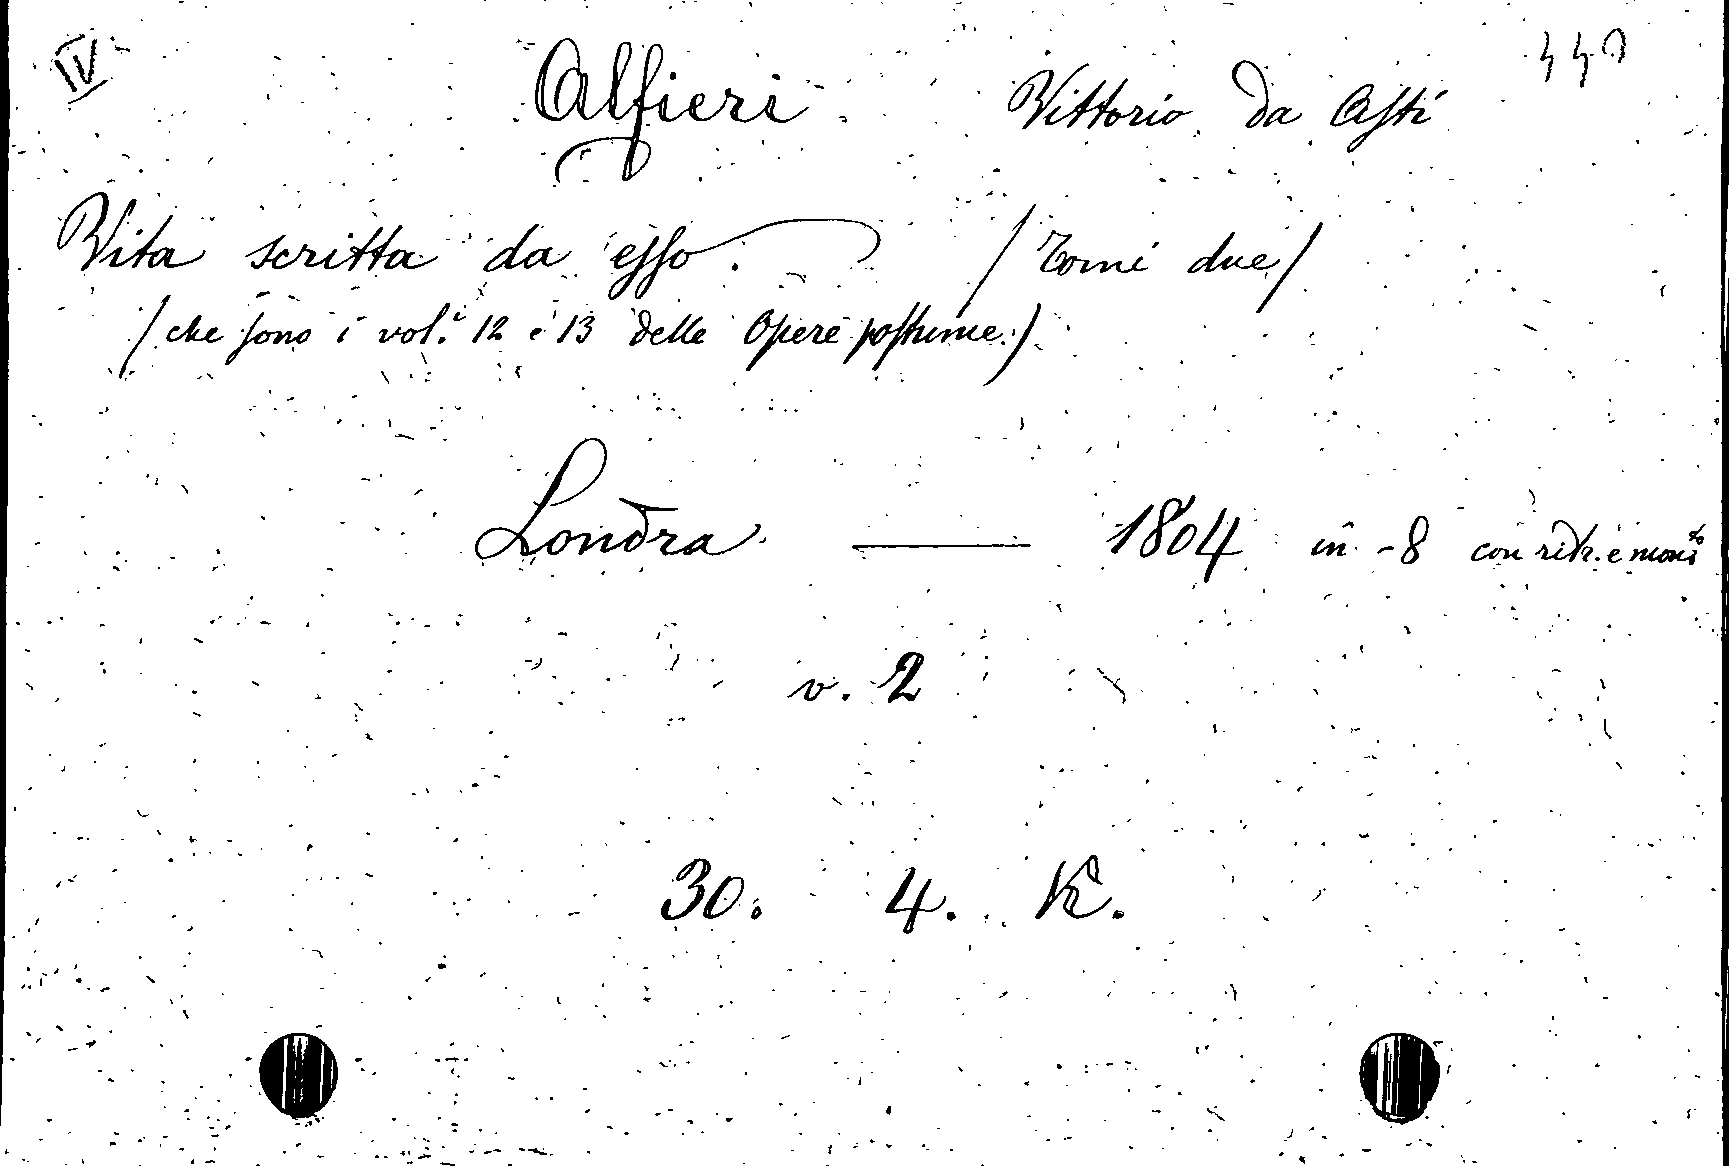 IV
Alfieri Vittorio da Asti
Vita scritta da esso. / Tomi due /
/ che sono i vol.i 12 e 13 delle Opere postume. /
Londra — 1804 in -8 con ritr. e mon.to
v. 2
30. 4. K.